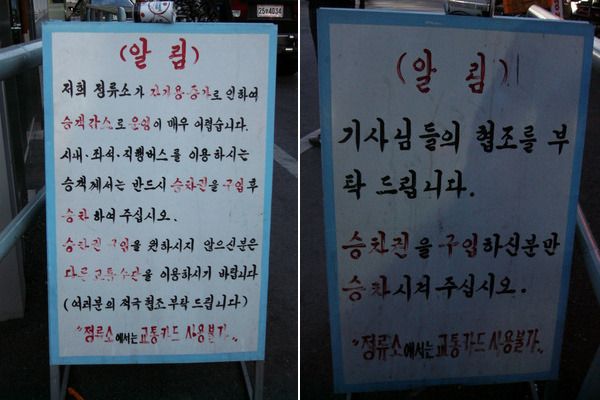 25무4034
(알 림)
저희 정류소가 자가용·증가로 인하여
승객감소로 운임이 매우 어렵습니다.
시내·좌석·직행버스를 이용하시는
승객께서는 반드시 승차권을 구입후
승차 하여 주십시오.
승차권 구입을 원하시지 않으신분은
다른 교통수단을 이용하시기 바랍니다
(여러분의 적극 협조 부탁 드립니다)
"정류소에서는 교통카드 사용불가"
(알 림)
기사님들의 협조를 부
탁 드립니다.
승차권을 구입하신분만
승차시켜 주십시오.
"정류소에서는 교통카드 사용불가"